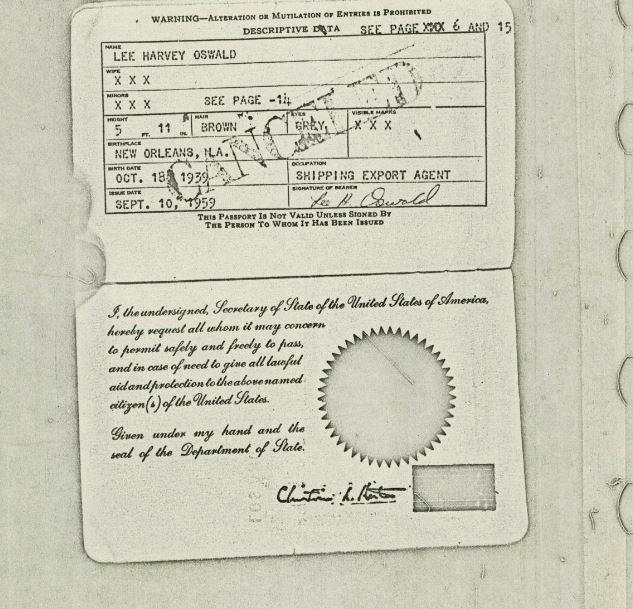 WARNING—ALTERATION OR MUTILATION OF ENTRIES IS PROHIBITED
DESCRIPTIVE DATA SEE PAGE XXX 6 AND 15
NAME
LEE HARVEY OSWALD
WIFE
X X X
MINORS
X X X SEE PAGE -14
HEIGHT HAIR EYES VISIBLE MARKS
5 FT. 11 IN. BROWN GREY X X X
BIRTHPLACE
NEW ORLEANS, LA.
BIRTH DATE OCCUPATION
OCT. 18, 1939 SHIPPING EXPORT AGENT
ISSUE DATE SIGNATURE OF BEARER
SEPT. 10, 1959 Lee H. Oswald
CANCELLED
THIS PASSPORT IS NOT VALID UNLESS SIGNED BY
THE PERSON TO WHOM IT HAS BEEN ISSUED
I, the undersigned, Secretary of State of the United States of America,
hereby request all whom it may concern
to permit safely and freely to pass,
and in case of need to give all lawful
aid and protection to the above named
citizen(s) of the United States.
Given under my hand and the
seal of the Department of State.